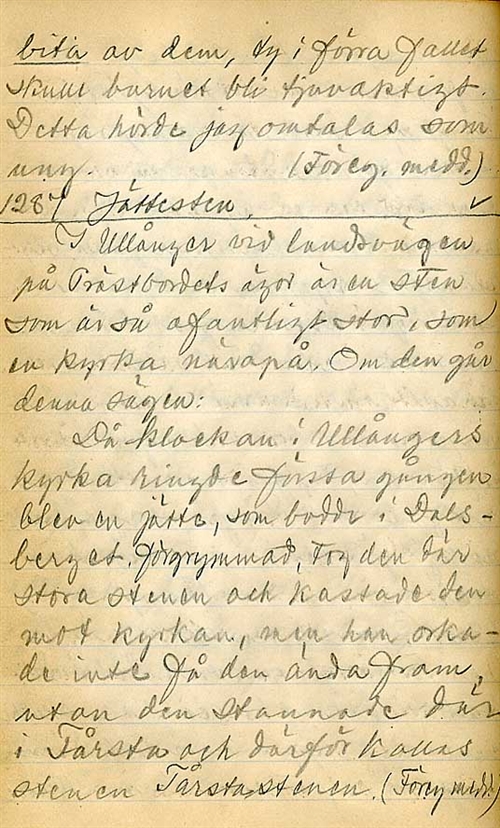 bita av dem, ty i förra fallet
skulle barnet bli tjuvaktigt.
Detta hörde jag omtalas som
ung. (Föreg. medd.)
1287 Jättesten. ✓
I Ullånger vid landsvägen
på Prästbordets ägor är en sten
som är så ofantligt stor, som
en kyrka närapå. Om den går
denna sägen:
Då klockan i Ullångers
kyrka ringde första gången
blev en jätte, som bodde i Dals-
berget, förgrymmad, tog den där
stora stenen och kastade den
mot kyrkan, men han orka-
de inte få den ända fram,
utan den stannade där
i Tårsta och därför kallas
stenen Tårstastenen. (Föreg medd.)